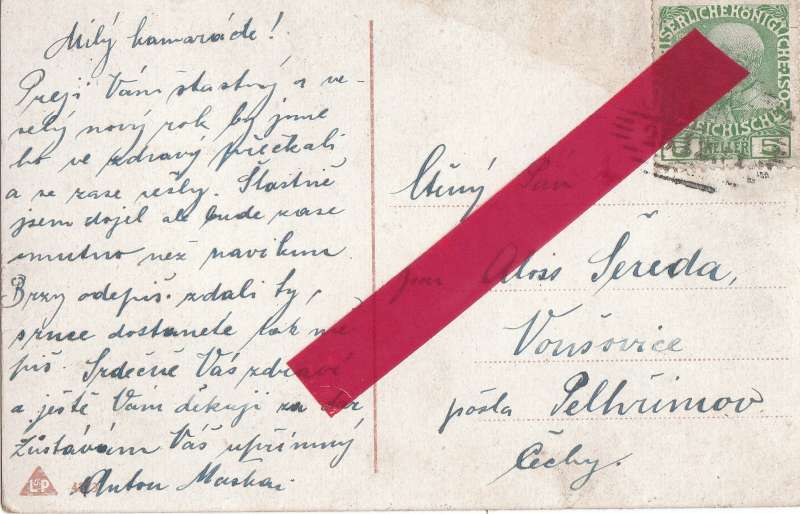 Milý kamaráde!
Přeji Vám šťastný a ve-
selý nový rok by jsme
ho ve zdraví přečkali
a se zase sešly. Šťastně
jsem dojel ale bude zase
smutno než naviknu
Brzy odepiš. zdali ty,
srnce dostanete tak mě
piš. Srdečně Vás zdraví
a ještě Vám děkuji za dar
Zůstávám Váš upřímný
Anton
L&P
KAISERLICHE KÖNIGLICHE ÖST
REICHISCHE
5 HELLER 5
Ctěný Pán
pan Alois Šereda,
Voušovice
pošta Pelhřimov
Čechy.